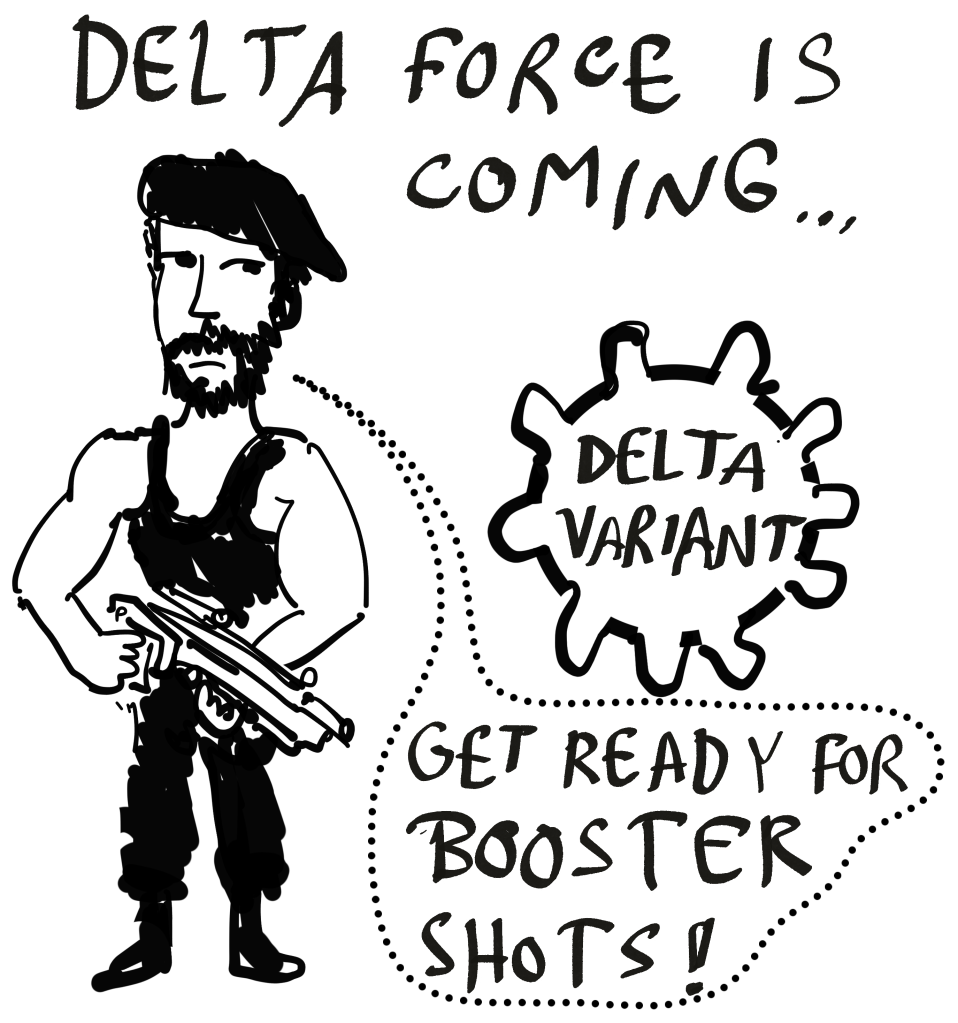 DELTA FORCE IS
COMING...
DELTA
VARIANT
GET READY FOR
BOOSTER
SHOTS!